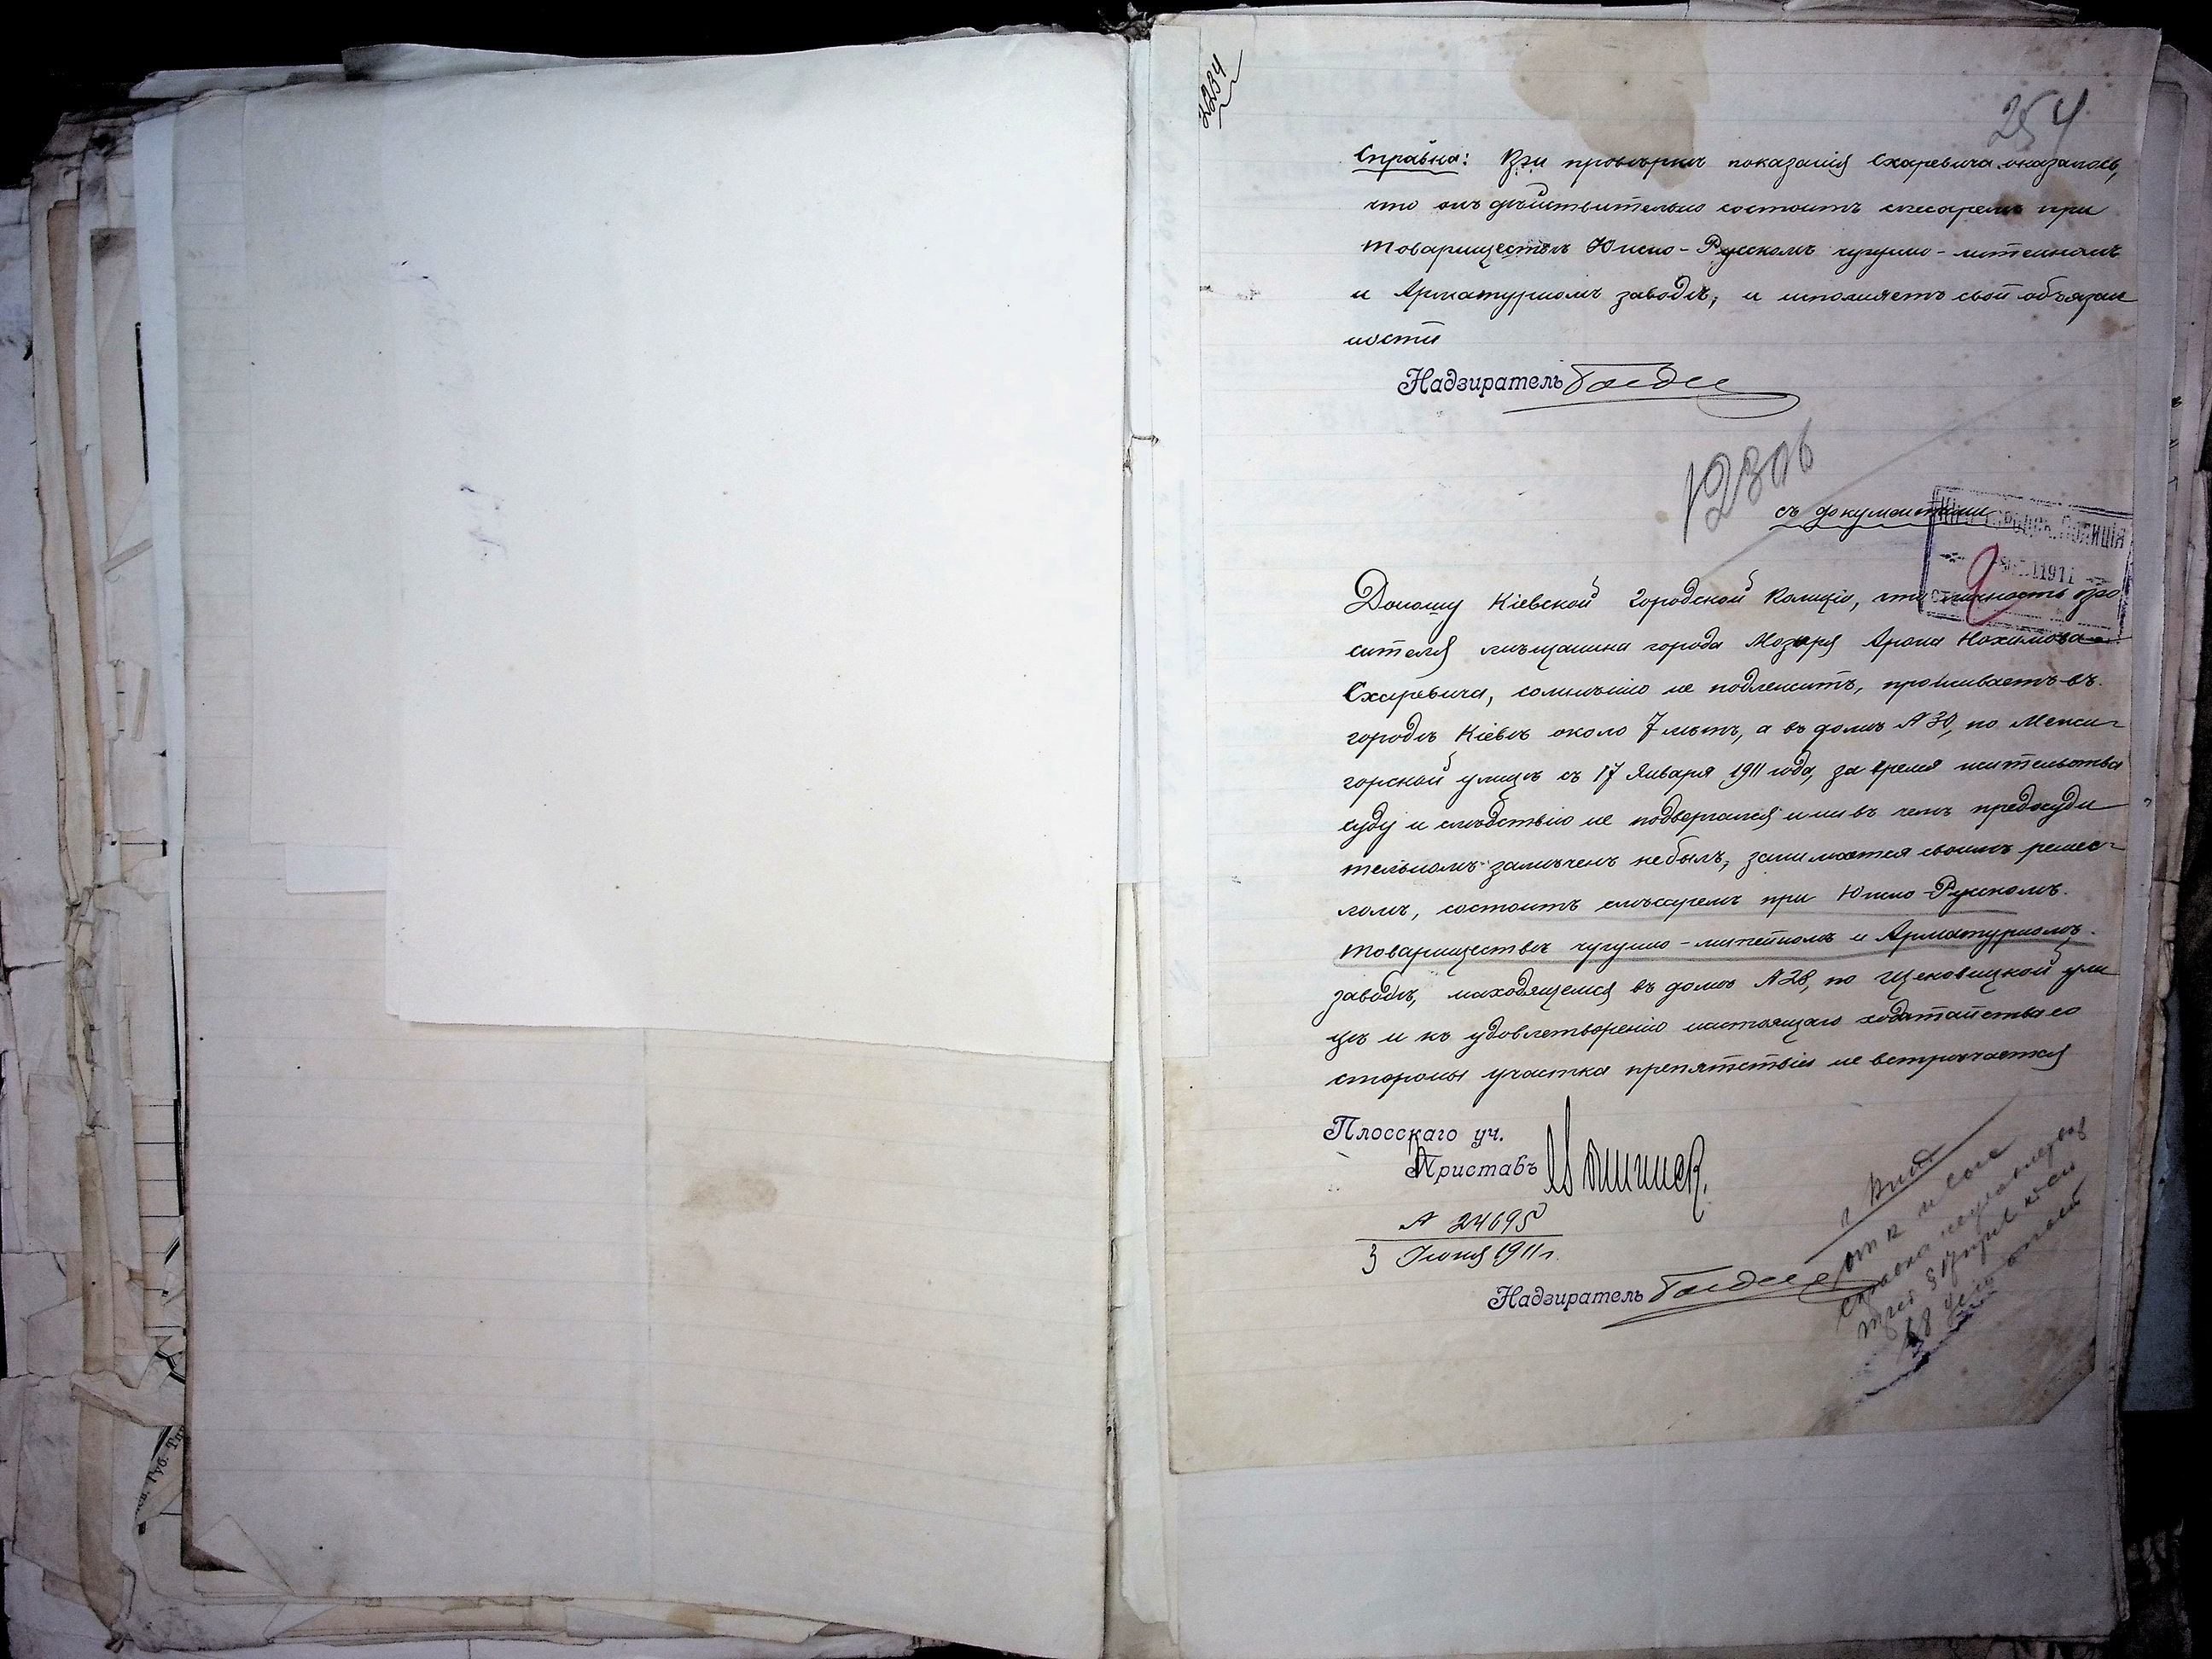 2234
254
Справка: При проверкѣ показанія Схаревича оказалось,
что онъ дѣйствительно состоитъ слесаремъ при
Товариществѣ Южно-Русскомъ чугунно-литейномъ
и Арматурномъ заводѣ, и исполняетъ свои обязан
ности
Надзиратель
съ документами
КІЕВ. ГОРОДСК. ПОЛИЦІЯ
1911
Доношу Кіевской Городской Полиціи, что личность про
сителя мѣщанина города Мозыря Арона Нохимова
Схаревича, сомнѣнію не подлежитъ, проживаетъ въ
городѣ Кіевѣ около 7 лѣтъ, а въ домѣ № 30, по Межи-
горской улицѣ съ 17 Января 1911 года, за время жительства
суду и слѣдствію не подвергался и ни въ чемъ предосуди
тельномъ замѣченъ не былъ, занимается своимъ ремес-
ломъ, состоитъ слѣсаремъ при Южно-Русскомъ
Товариществѣ чугунно-литейномъ и Арматурномъ
заводѣ, находящемся въ домѣ № 28, по Щековицкой ули
цѣ и къ удовлетворенію настоящаго ходатайства со
стороны участка препятствій не встрѣчается
Плосскаго уч.
Приставъ
№ 24695
3 Іюня 1911 г.
Надзиратель